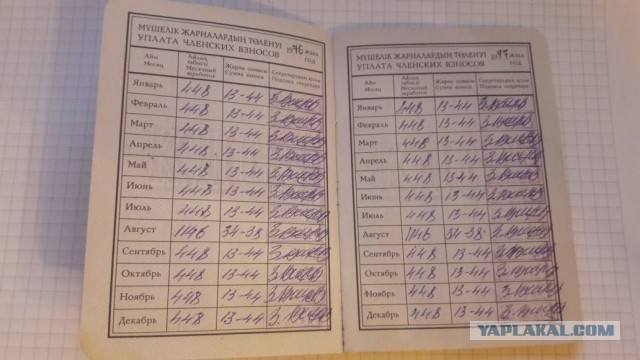 МҮШЕЛІК ЖАРНАЛАРДЫҢ ТӨЛЕНУІ
УПЛАТА ЧЛЕНСКИХ ВЗНОСОВ
1976 жыл
год
Айы
Месяц
Айлық табысы
Месячный заработок
Жарна сомасы
Сумма взноса
Секретардың қолы
Подпись секретаря
Январь 448 13-44
Февраль 448 13-44
Март 448 13-44
Апрель 448 13-44
Май 448 13-44
Июнь 448 13-44
Июль 448 13-44
Август 1146 34-38
Сентябрь 448 13-44
Октябрь 448 13-44
Ноябрь 448 13-44
Декабрь 448 13-44
МҮШЕЛІК ЖАРНАЛАРДЫҢ ТӨЛЕНУІ
УПЛАТА ЧЛЕНСКИХ ВЗНОСОВ
1977 жыл
год
Айы
Месяц
Айлық табысы
Месячный заработок
Жарна сомасы
Сумма взноса
Секретардың қолы
Подпись секретаря
Январь 448 13-44
Февраль 448 13-44
Март 448 13-44
Апрель 448 13-44
Май 448 13-44
Июнь 448 13-44
Июль 448 13-44
Август 1146 34-38
Сентябрь 448 13-44
Октябрь 448 13-44
Ноябрь 448 13-44
Декабрь 448 13-44
YAPLAKAL.COM